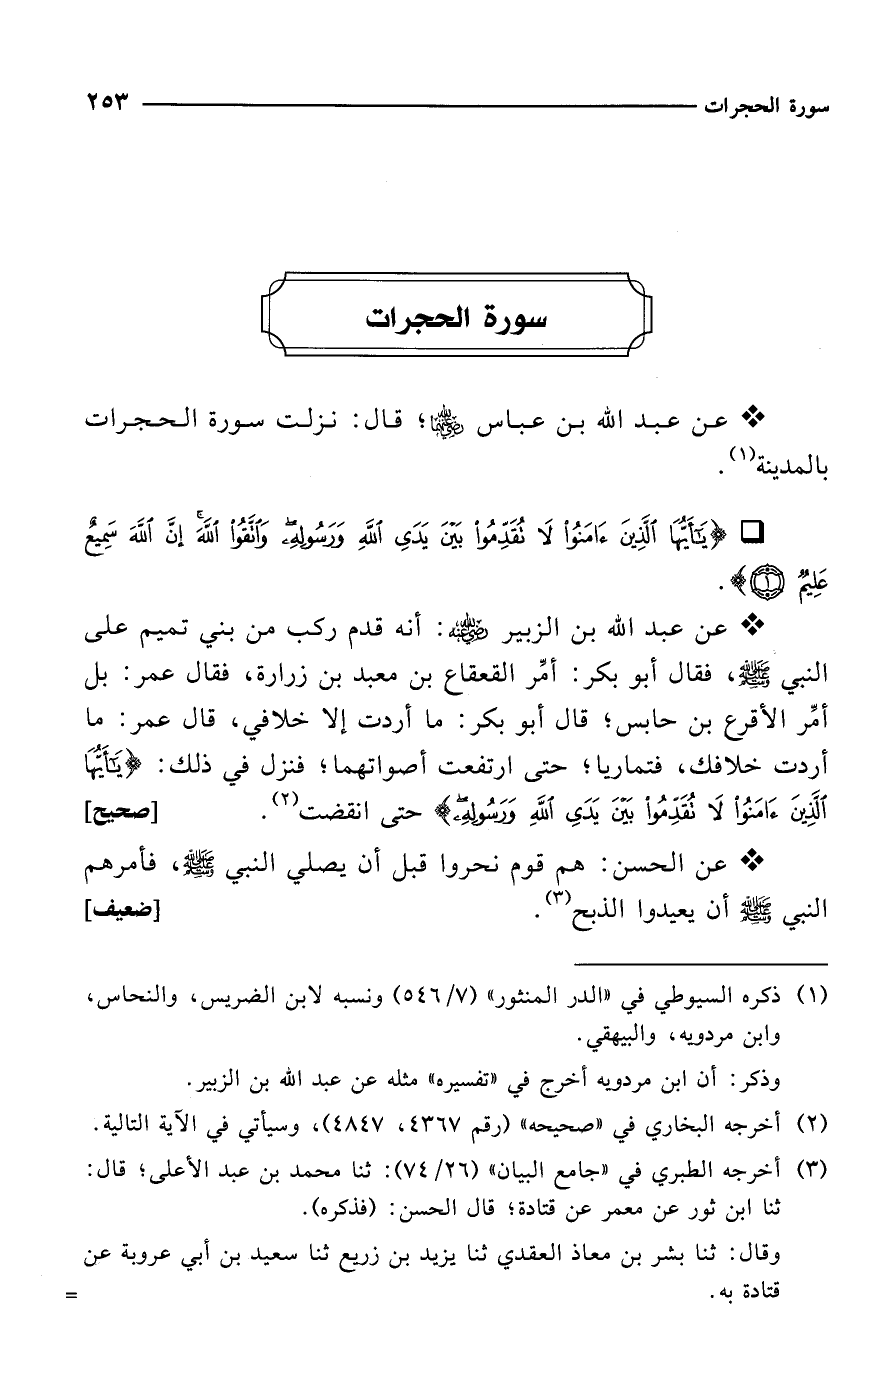 سورة الحجرات ٢٥٣
سورة الحجرات
❖ عن عبد الله بن عباس رضي الله عنهما؛ قال: نزلت سورة الحجرات
بالمدينة(١).
❑ ﴿يَٰٓأَيُّهَا ٱلَّذِينَ ءَامَنُوا۟ لَا تُقَدِّمُوا۟ بَيْنَ يَدَىِ ٱللَّهِ وَرَسُولِهِۦ ۖ وَٱتَّقُوا۟ ٱللَّهَ ۚ إِنَّ ٱللَّهَ سَمِيعٌ
عَلِيمٌ ١﴾.
❖ عن عبد الله بن الزبير رضي الله عنه: أنه قدم ركب من بني تميم على
النبي ﷺ، فقال أبو بكر: أمِّر القعقاع بن معبد بن زرارة، فقال عمر: بل
أمِّر الأقرع بن حابس؛ قال أبو بكر: ما أردت إلا خلافي، قال عمر: ما
أردت خلافك، فتماريا؛ حتى ارتفعت أصواتهما؛ فنزل في ذلك: ﴿يَٰٓأَيُّهَا
ٱلَّذِينَ ءَامَنُوا۟ لَا تُقَدِّمُوا۟ بَيْنَ يَدَىِ ٱللَّهِ وَرَسُولِهِۦ ۖ﴾ حتى انقضت(٢). [صحيح]
❖ عن الحسن: هم قوم نحروا قبل أن يصلي النبي ﷺ، فأمرهم
النبي ﷺ أن يعيدوا الذبح(٣). [ضعيف]
(١) ذكره السيوطي في «الدر المنثور» (٧/ ٥٤٦) ونسبه لابن الضريس، والنحاس،
وابن مردويه، والبيهقي.
وذكر: أن ابن مردويه أخرج في «تفسيره» مثله عن عبد الله بن الزبير.
(٢) أخرجه البخاري في «صحيحه» (رقم ٤٣٦٧، ٤٨٤٧)، وسيأتي في الآية التالية.
(٣) أخرجه الطبري في «جامع البيان» (٢٦/ ٧٤): ثنا محمد بن عبد الأعلى؛ قال:
ثنا ابن ثور عن معمر عن قتادة؛ قال الحسن: (فذكره).
وقال: ثنا بشر بن معاذ العقدي ثنا يزيد بن زريع ثنا سعيد بن أبي عروبة عن
قتادة به. =